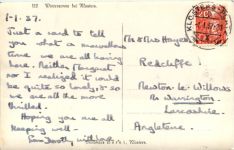 1-1-37.
Just a card to tell
you what a marvellous
time we are all having
here. Neither Margaret
nor I realized it could
be quite so lovely, & so
we are all the more
thrilled.
Hoping you are all
keeping well -
with love.
Mr & Mrs Hayes,
Redcliffe,
Newton-le-Willows
Nr Warrington
Lancashire
Angleterre.